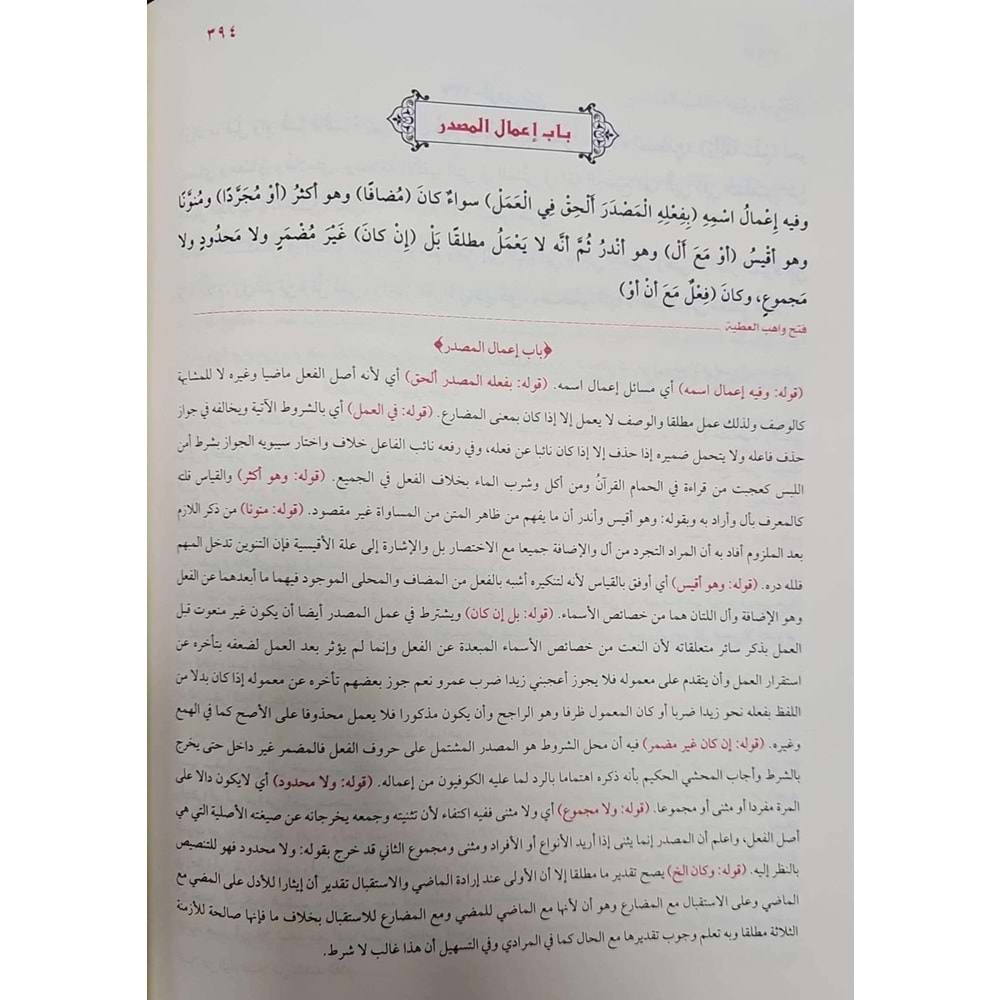 ٣٩٤
باب إعمال المصدر
وفيه إِعْمالُ اسْمِهِ (بِفِعْلِهِ الْمَصْدَرَ أَلْحِقْ فِي الْعَمَلْ) سواءٌ كانَ (مُضافًا) وهو أكثرُ (أوْ مُجَرَّدًا) ومُنَوَّنًا
وهو أقْيسُ (أوْ مَعَ ألْ) وهو أنْدرُ ثُمَّ أنَّه لا يَعْمَلُ مطلقًا بَلْ (إِنْ كانَ) غَيْرَ مُضْمَرٍ ولا مَحدُودٍ ولا
مَجموعٍ، وكانَ (فِعْلٌ مَعَ أنْ أوْ)
فتح واهب العطية
﴿باب إعمال المصدر﴾
(قوله: وفيه إعمال اسمه) أي مسائل إعمال اسمه. (قوله: بفعله المصدر ألحق) أي لأنه أصل الفعل ماضيا وغيره لا للمشابهة
كالوصف ولذلك عمل مطلقا والوصف لا يعمل إلا إذا كان بمعنى المضارع. (قوله: في العمل) أي بالشروط الآتية ويخالفه في جواز
حذف فاعله ولا يتحمل ضميره إذا حذف إلا إذا كان نائبا عن فعله، وفي رفعه نائب الفاعل خلاف واختار سيبويه الجواز بشرط أمن
اللبس كعجبت من قراءة في الحمام القرآنُ ومن أكل وشرب الماء بخلاف الفعل في الجميع. (قوله: وهو أكثر) والقياس فك
كالمعرف بأل وأراد به وبقوله: وهو أقيس وأندر أن ما يفهم من ظاهر المتن من المساواة غير مقصود. (قوله: منونا) من ذكر اللازم
بعد الملزوم أفاد به أن المراد التجرد من أل والإضافة جميعا مع الاختصار بل والإشارة إلى علة الأقيسية فإن التنوين تدخل المبهم
فلله دره. (قوله: وهو أقيس) أي أوفق بالقياس لأنه لتنكيره أشبه بالفعل من المضاف والمحلى الموجود فيهما ما أبعدهما عن الفعل
وهو الإضافة وأل اللتان هما من خصائص الأسماء. (قوله: بل إن كان) ويشترط في عمل المصدر أيضا أن يكون غير منعوت قبل
العمل بذكر سائر متعلقاته لأن النعت من خصائص الأسماء المبعدة عن الفعل وإنما لم يؤثر بعد العمل لضعفه بتأخره عن
استقرار العمل وأن يتقدم على معموله فلا يجوز أعجبني زيدا ضرب عمرو نعم جوز بعضهم تأخره عن معموله إذا كان بدلا من
اللفظ بفعله نحو زيدا ضربا أو كان المعمول ظرفا وهو الراجح وأن يكون مذكورا فلا يعمل محذوفا على الأصح كما في الهمع
وغيره. (قوله: إن كان غير مضمر) فيه أن محل الشروط هو المصدر المشتمل على حروف الفعل فالمضمر غير داخل حتى يخرج
بالشرط وأجاب المحشي الحكيم بأنه ذكره اهتماما بالرد لما عليه الكوفيون من إعماله. (قوله: ولا محدود) أي لايكون دالا على
المرة مفردا أو مثنى أو مجموعا. (قوله: ولا مجموع) أي ولا مثنى ففيه اكتفاء لأن تثنيته وجمعه يخرجانه عن صيغته الأصلية التي هي
أصل الفعل، واعلم أن المصدر إنما يثنى إذا أريد الأنواع أو الأفراد ومثنى ومجموع الثاني قد خرج بقوله: ولا محدود فهو للتنصيص
بالنظر إليه. (قوله: وكان الخ) يصح تقدير ما مطلقا إلا أن الأولى عند إرادة الماضي والاستقبال تقدير أن إيثارا للأدل على المضي مع
الماضي وعلى الاستقبال مع المضارع وهو أن لأنها مع الماضي للمضي ومع المضارع للاستقبال بخلاف ما فإنها صالحة للأزمنة
الثلاثة مطلقا وبه تعلم وجوب تقديرها مع الحال كما في المرادي وفي التسهيل أن هذا غالب لا شرط.